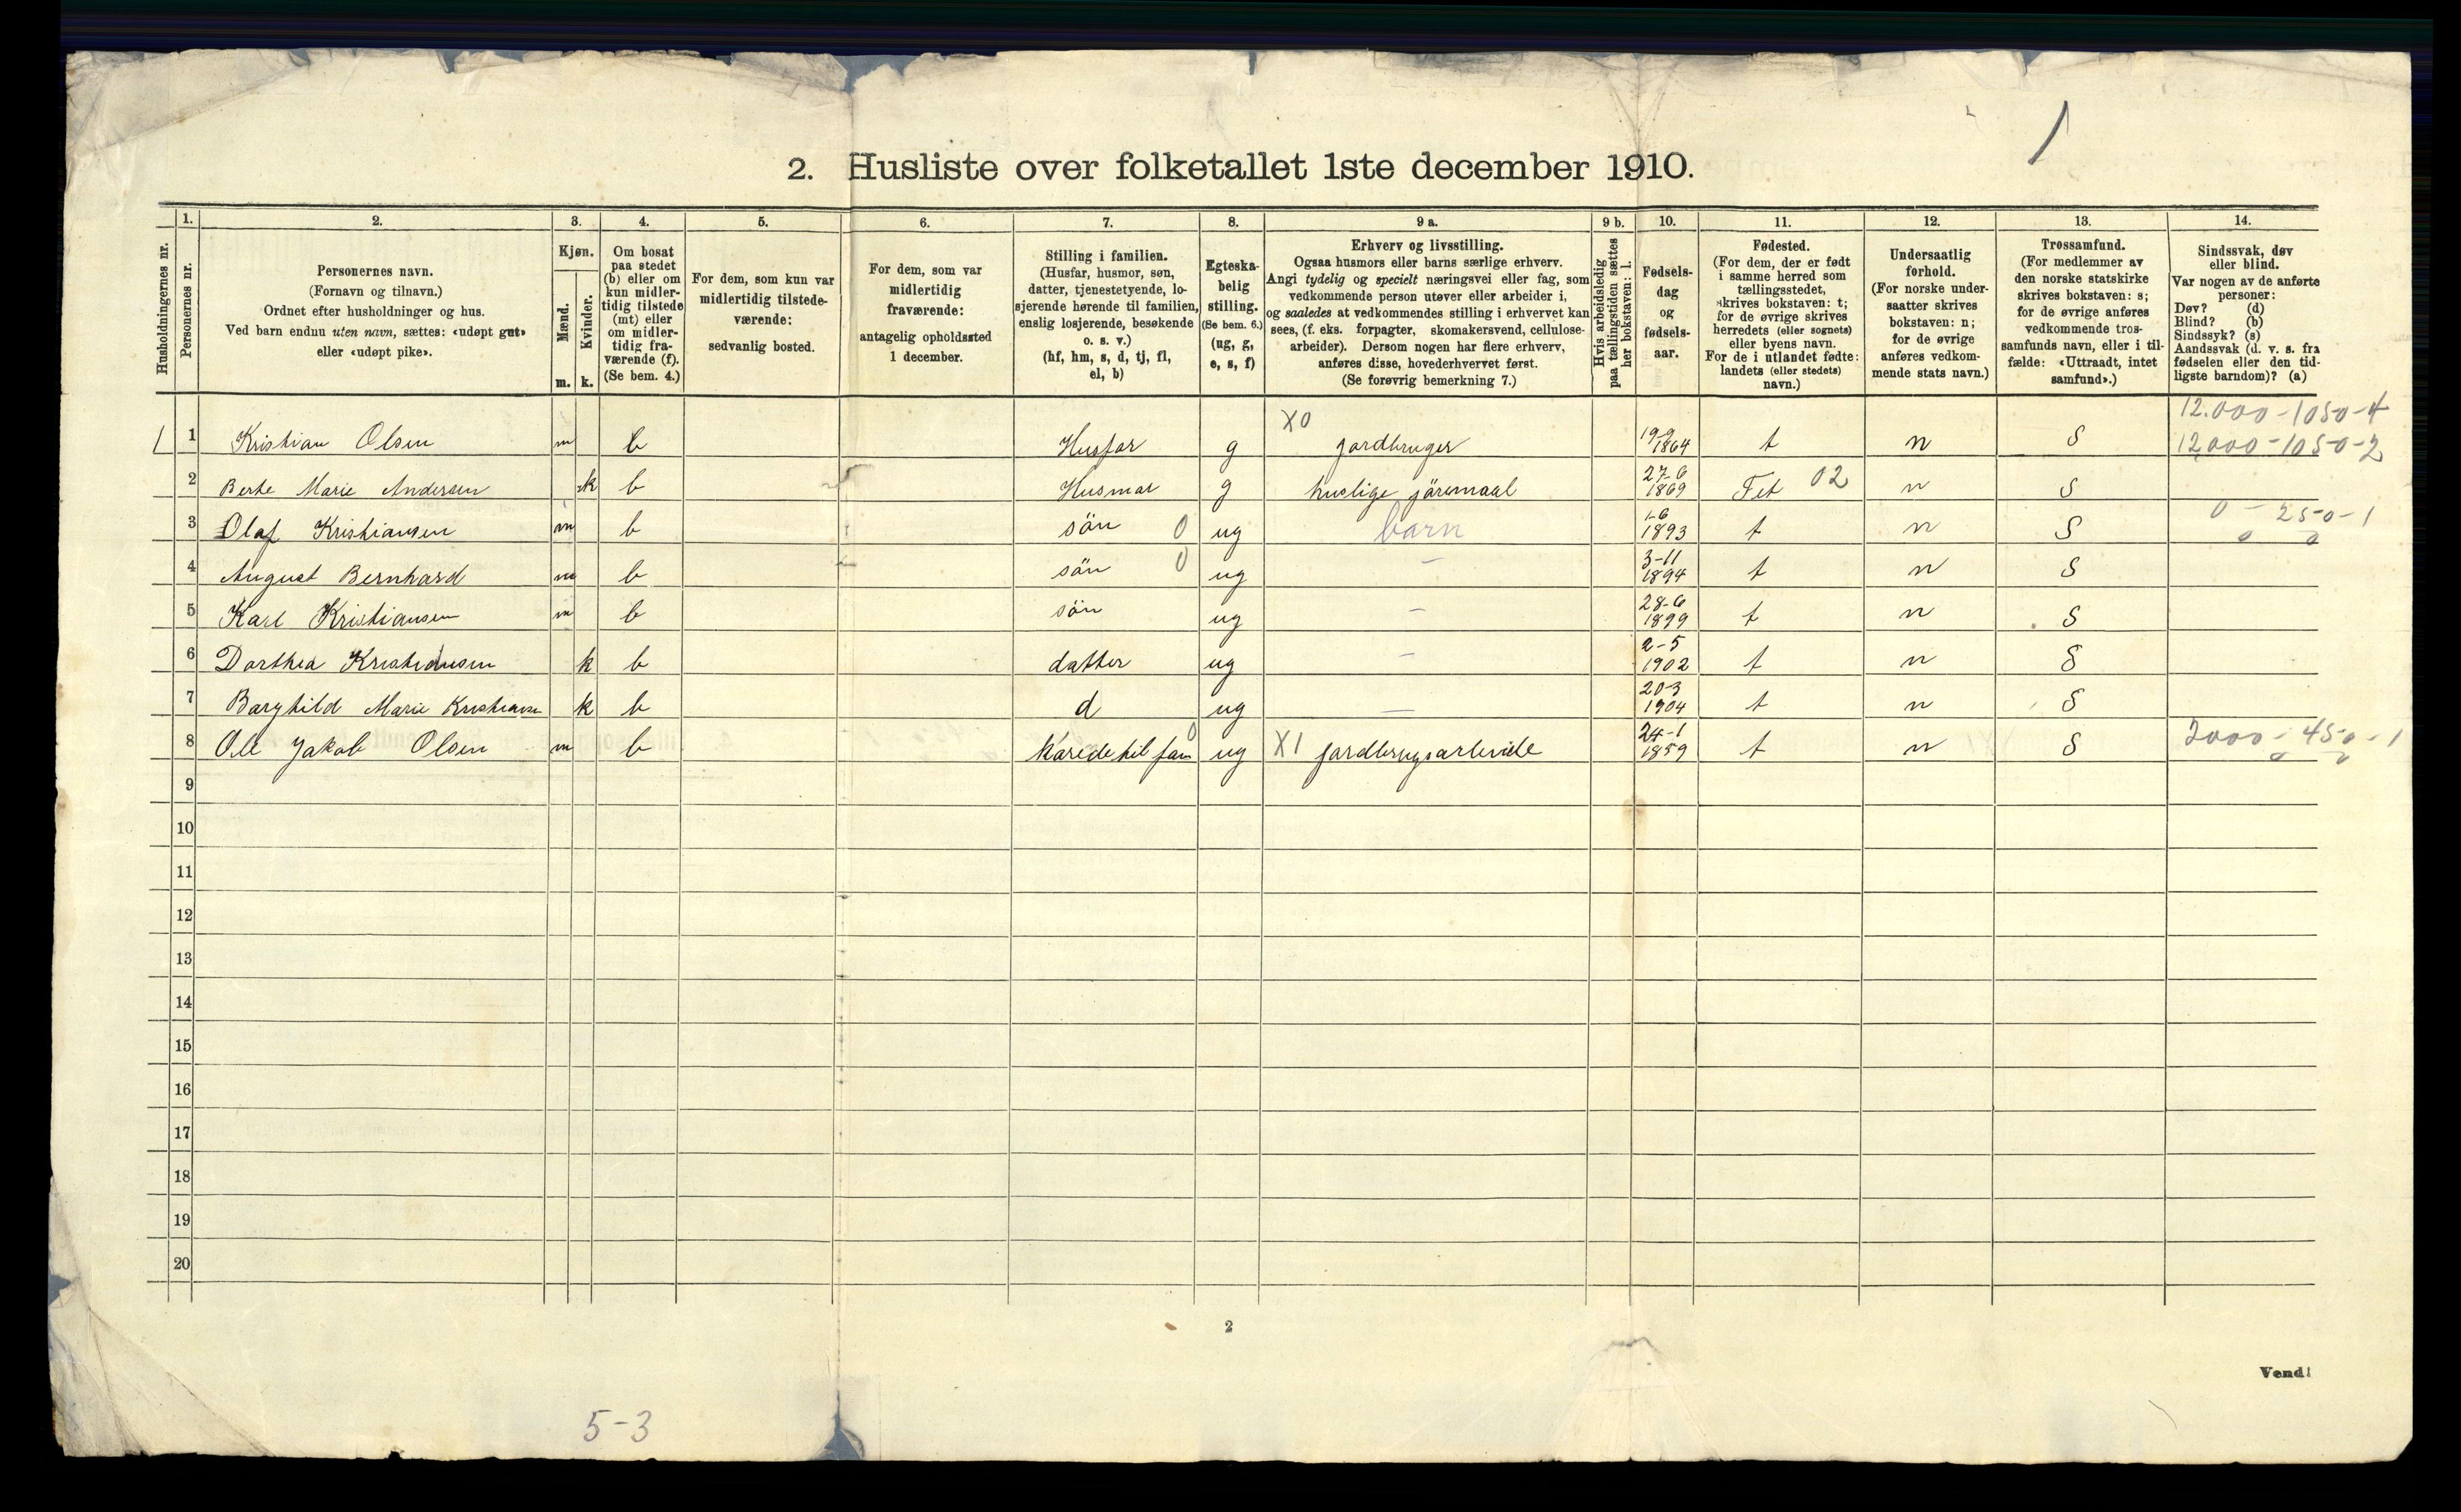 1
2. Husliste over folketallet 1ste december 1910.
1. 2. 3. 4. 5. 6. 7. 8. 9 a. 9 b. 10. 11. 12. 13. 14.
Husholdningernes nr.
Personernes nr.
Personernes navn.
(Fornavn og tilnavn.)
Ordnet efter husholdninger og hus.
Ved barn endnu uten navn, sættes: «udøpt gut»
eller «udøpt pike».
Kjøn.
Mænd.
m.
Kvinder.
k.
Om bosat
paa stedet
(b) eller om
kun midler-
tidig tilstede
(mt) eller
om midler-
tidig fra-
værende (f).
(Se bem. 4.)
For dem, som kun var
midlertidig tilstede-
værende:
sedvanlig bosted.
For dem, som var
midlertidig
fraværende:
antagelig opholdssted
1 december.
Stilling i familien.
(Husfar, husmor, søn,
datter, tjenestetyende, lo-
sjerende hørende til familien,
enslig losjerende, besøkende
o. s. v.)
(hf, hm, s, d, tj, fl,
el, b)
Egteska-
belig
stilling.
(Se bem. 6.)
(ug, g,
e, s, f)
Erhverv og livsstilling.
Ogsaa husmors eller barns særlige erhverv.
Angi tydelig og specielt næringsvei eller fag, som
vedkommende person utøver eller arbeider i,
og saaledes at vedkommendes stilling i erhvervet kan
sees, (f. eks. forpagter, skomakersvend, cellulose-
arbeider). Dersom nogen har flere erhverv,
anføres disse, hovederhvervet først.
(Se forøvrig bemerkning 7.)
Hvis arbeidsledig
paa tællingstiden sættes
her bokstaven: l.
Fødsels-
dag
og
fødsels-
aar.
Fødested.
(For dem, der er født
i samme herred som
tællingsstedet,
skrives bokstaven: t;
for de øvrige skrives
herredets (eller sognets)
eller byens navn.
For de i utlandet fødte:
landets (eller stedets)
navn.)
Undersaatlig
forhold.
(For norske under-
saatter skrives
bokstaven: n;
for de øvrige
anføres vedkom-
mende stats navn.)
Trossamfund.
(For medlemmer av
den norske statskirke
skrives bokstaven: s;
for de øvrige anføres
vedkommende tros-
samfunds navn, eller i til-
fælde: «Uttraadt, intet
samfund».)
Sindssvak, døv
eller blind.
Var nogen av de anførte
personer:
Døv? (d)
Blind? (b)
Sindssyk? (s)
Aandssvak (d. v. s. fra
fødselen eller den tid-
ligste barndom)? (a)
12.000-1050-4
1 1 Kristian Olsen m b Husfar g X0 jordbruger 19-9 1864 t n S 12,000-1050-2
2 Berte Marie Andersen k b Husmor g huslige jøremaal 27-6 1869 Fet 02 n S
3 Olaf Kristiansen m b søn 0 ug barn 1-6 1893 t n S 0 - 250-1
4 August Bernhard m b søn 0 ug - 3-11 1894 t n S
5 Karl Kristiansen m b søn ug - 28-6 1899 t n S
6 Dorthea Kristiansen k b datter ug - 2-5 1902 t n S
7 Borghild Marie Kristiansen k b d ug - 20-3 1904 t n S
8 Ole Jakob Olsen m b 0 ug X1 24-1 1859 t n S 2000-450-1
9
10
11
12
13
14
15
16
17
18
19
20
2
Vend!
5-3